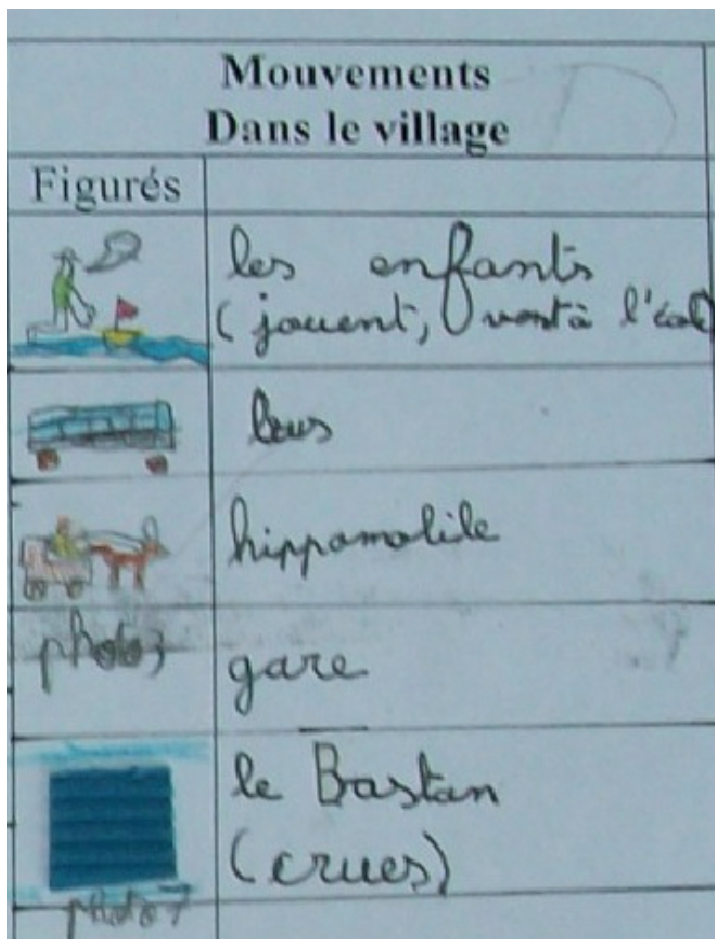 Mouvements
Dans le village
Figurés
les enfants
(jouent, vont à l'écol
bus
hippomobile
photo 3
gare
le Bastan
(crues)
photo 7